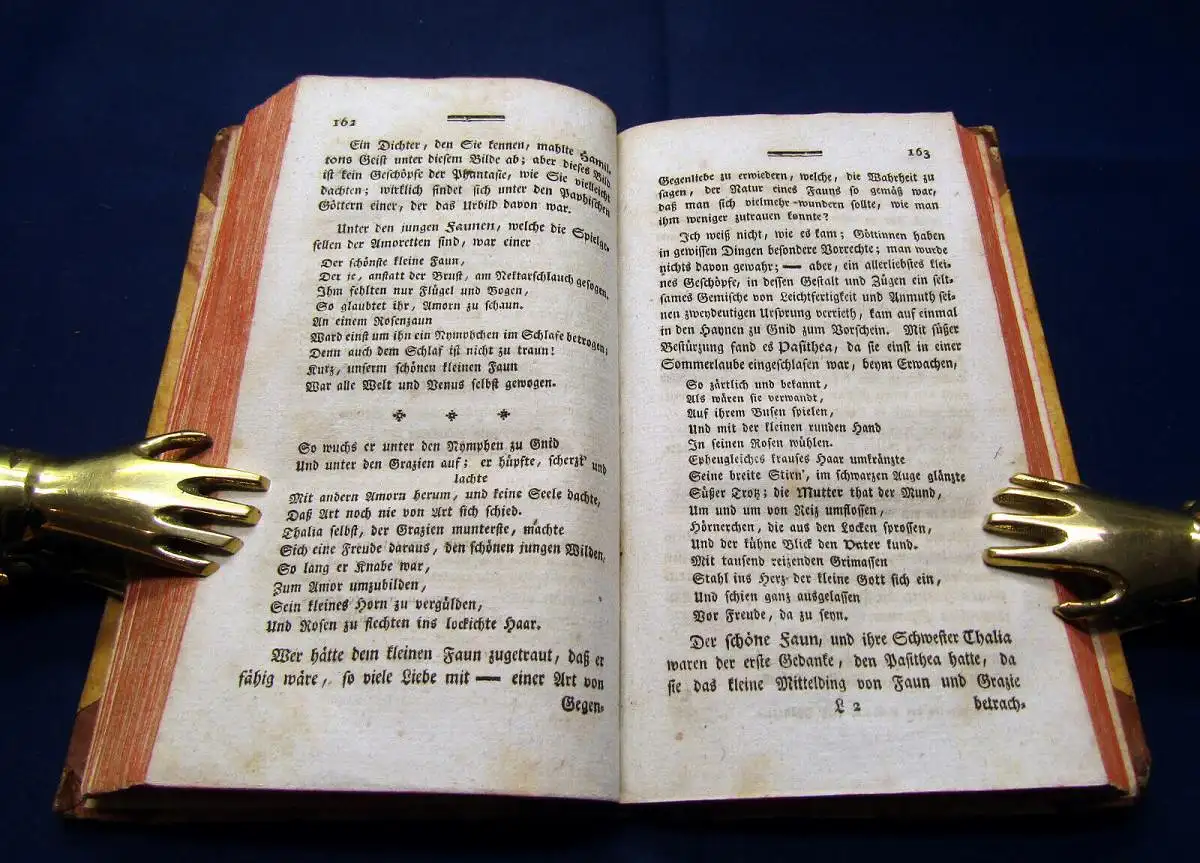 162
Ein Dichter, den Sie kennen, mahlte Hamil-
tons Geist unter diesem Bilde ab; aber dieses Bild
ist kein Geschöpfe der Phantasie, wie Sie vielleicht
dachten; wirklich findet sich unter den Paphischen
Göttern einer, der das Urbild davon war.
Unter den jungen Faunen, welche die Spielge-
sellen der Amoretten sind, war einer
Der schönste kleine Faun,
Der je, anstatt der Brust, am Nektarschlauch gesogen.
Ihm fehlten nur Flügel und Bogen,
So glaubtet ihr, Amorn zu schaun.
An einem Rosenzaun
Ward einst um ihn ein Nymphchen im Schlafe betrogen;
Denn auch dem Schlaf ist nicht zu traun!
Kurz, unserm schönen kleinen Faun
War alle Welt und Venus selbst gewogen.
So wuchs er unter den Nymphen zu Gnid
Und unter den Grazien auf; er hüpfte, scherzt' und
lachte
Mit andern Amorn herum, und keine Seele dachte,
Daß Art noch nie von Art sich schied.
Thalia selbst, der Grazien munterste, machte
Sich eine Freude daraus, den schönen jungen Wilden,
So lang er Knabe war,
Zum Amor umzubilden,
Sein kleines Horn zu vergülden,
Und Rosen zu flechten ins lockichte Haar.
Wer hätte dem kleinen Faun zugetraut, daß er
fähig wäre, so viele Liebe mit — einer Art von
Gegen-
163
Gegenliebe zu erwiedern, welche, die Wahrheit zu
sagen, der Natur eines Fauns so gemäß war,
daß man sich vielmehr wundern sollte, wie man
ihm weniger zutrauen konnte?
Ich weiß nicht, wie es kam; Göttinnen haben
in gewissen Dingen besondere Vorrechte; man wurde
nichts davon gewahr; — aber, ein allerliebstes klei-
nes Geschöpfe, in dessen Gestalt und Zügen ein selt-
sames Gemische von Leichtfertigkeit und Anmuth sei-
nen zweydeutigen Ursprung verrieth, kam auf einmal
in den Haynen zu Gnid zum Vorschein. Mit süßer
Bestürzung fand es Pasithea, da sie einst in einer
Sommerlaube eingeschlafen war, beym Erwachen,
So zärtlich und bekannt,
Als wären sie verwandt,
Auf ihrem Busen spielen,
Und mit der kleinen runden Hand
In seinen Rosen wühlen.
Epheugleiches krauses Haar umkränzte
Seine breite Stirn', im schwarzen Auge glänzte
Süßer Trotz; die Mutter that der Mund,
Um und um von Reiz umflossen,
Hörnerchen, die aus den Locken sprossen,
Und der kühne Blick den Vater kund.
Mit tausend reizenden Grimassen
Stahl ins Herz der kleine Gott sich ein,
Und schien ganz ausgelassen
Vor Freude, da zu seyn.
Der schöne Faun, und ihre Schwester Thalia
waren der erste Gedanke, den Pasithea hatte, da
sie das kleine Mittelding von Faun und Grazie
L 2 betrach-